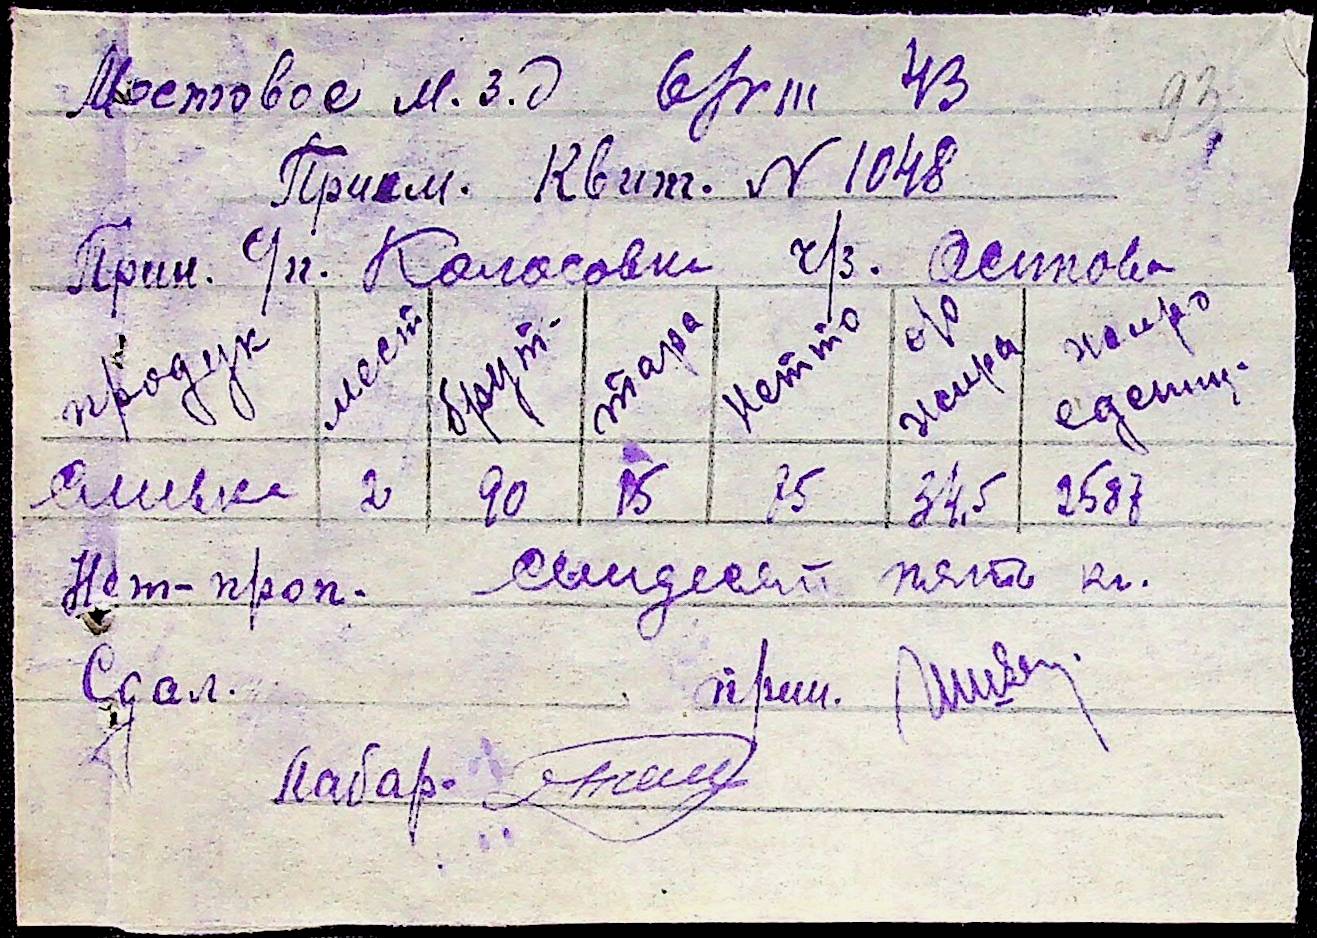 Мостовое м.з.д 6/VIII 43
93
Прием. Квит. № 1048
Прин. с/п. Коласовка ч/з. Осипова
продук мест брут- тара Нетто о/о жира жиро единиц.
Сливки 2 90 15 75 34,5 2587
Нет-проп. Семидесят пять кг.
Сдал. прин.
Лабар-